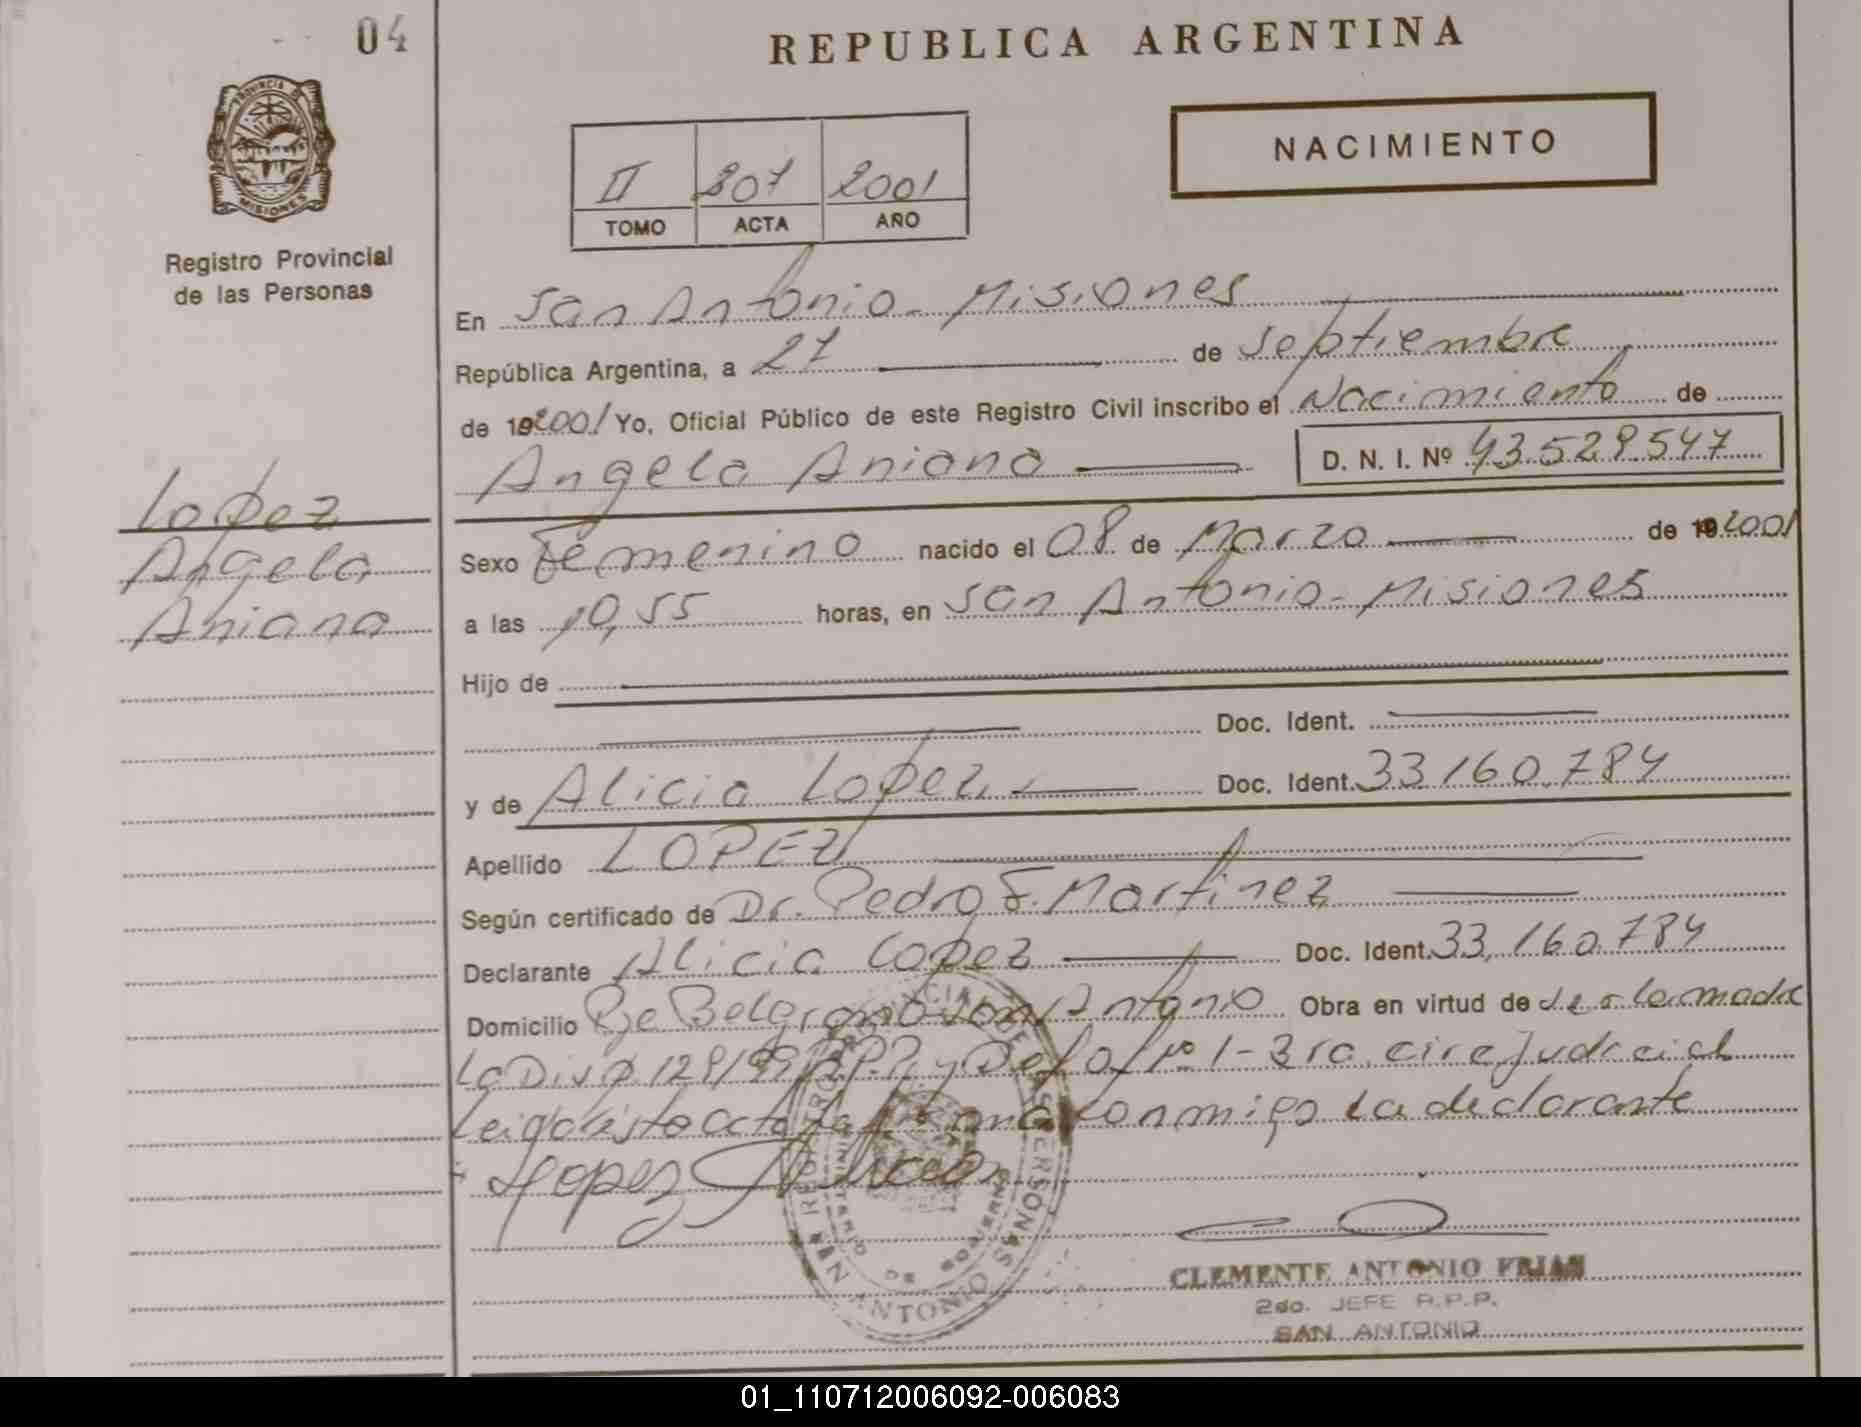 04
REPUBLICA ARGENTINA
PROVINCIA DE
MISIONES
Registro Provincial
de las Personas
NACIMIENTO
II 207 2001
TOMO ACTA AÑO
En San Antonio - Misiones
República Argentina, a 27 de Septiembre
de 2001 Yo, Oficial Público de este Registro Civil inscribo el Nacimiento de
Angela Aniana D. N. I. Nº 43.529547
Lopez
Angela
Aniana
Sexo Femenino nacido el 08 de Marzo de 2001
a las 10,55 horas, en San Antonio - Misiones
Hijo de
Doc. Ident.
y de Alicia Lopez Doc. Ident. 33160.784
Apellido LOPEZ
Según certificado de Dr. Pedro F. Martinez
Declarante Alicia Lopez Doc. Ident. 33.160.784
Domicilio Pje Belgrano San Antonio Obra en virtud de de la madre
La Disp. 129/99 R.P.P. y Def. Of. Nº 1 - 3ra circ judicial
Leida esta acta la firma conmigo la declarante
Lopez Alicia
SAN ANTONIO
MINISTERIO DE GOBIERNO
CLEMENTE ANTONIO FRIAS
2do. JEFE R.P.P.
SAN ANTONIO
01_110712006092-006083